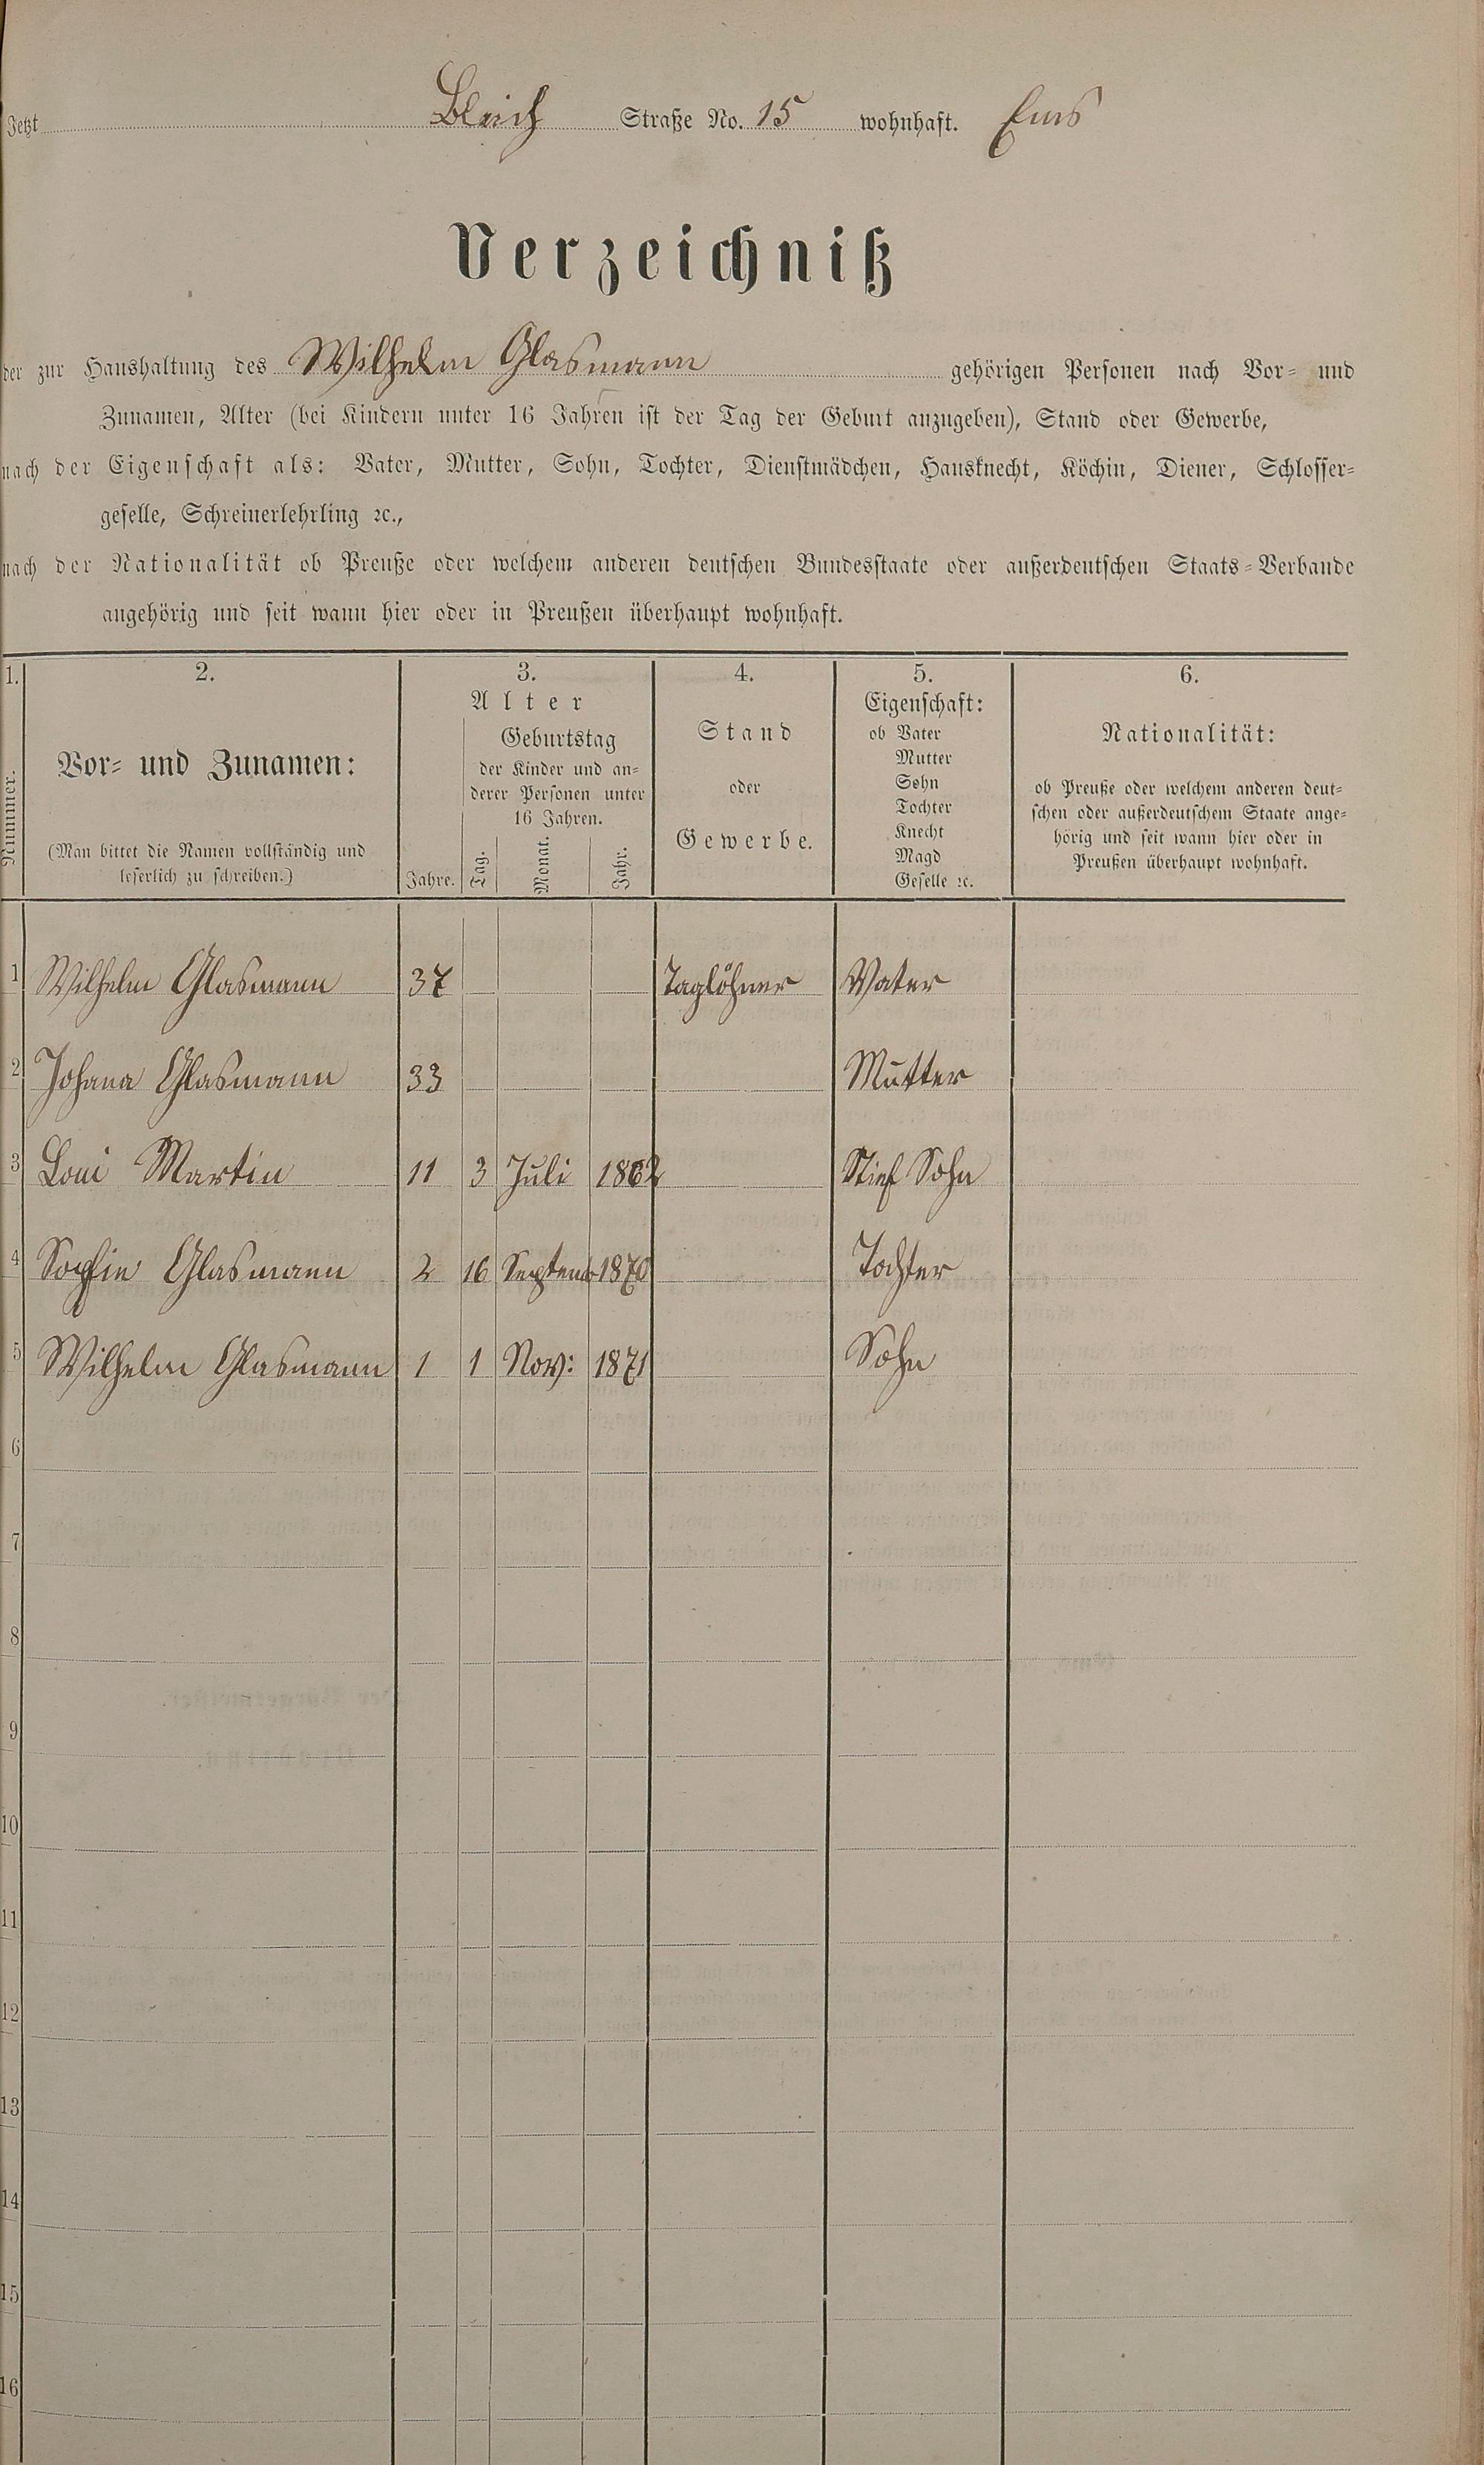 Jetzt Bleich Straße No. 15 wohnhaft. Ems
Verzeichniß
der zur Haushaltung des Wilhelm Glasmann gehörigen Personen nach Vor- und
Zunamen, Alter (bei Kindern unter 16 Jahren ist der Tag der Geburt anzugeben), Stand oder Gewerbe,
nach der Eigenschaft als: Vater, Mutter, Sohn, Tochter, Dienstmädchen, Hausknecht, Köchin, Diener, Schlosser-
geselle, Schreinerlehrling ꝛc.,
nach der Nationalität ob Preuße oder welchem anderen deutschen Bundesstaate oder außerdeutschen Staats-Verbande
angehörig und seit wann hier oder in Preußen überhaupt wohnhaft.
1.
Nummer.
2.
Vor- und Zunamen:
(Man bittet die Namen vollständig und
leserlich zu schreiben.)
3.
Alter
Geburtstag
der Kinder und an-
derer Personen unter
16 Jahren.
Jahre. Tag. Monat. Jahr.
4.
Stand
oder
Gewerbe.
5.
Eigenschaft:
ob Vater
Mutter
Sohn
Tochter
Knecht
Magd
Geselle ꝛc.
6.
Nationalität:
ob Preuße oder welchem anderen deut-
schen oder außerdeutschem Staate ange-
hörig und seit wann hier oder in
Preußen überhaupt wohnhaft.
1 Wilhelm Glasmann 37 Taglöhner Vater
2 Johana Glasmann 33 Mutter
3 Loui Martin 11 3 Juli 1862 Stief Sohn
4 Sophie Glasmann 2 16 Septemb 1870 Tochter
5 Wilhelm Glasmann 1 1 Nov: 1871 Sohn
6
7
8
9
10
11
12
13
14
15
16